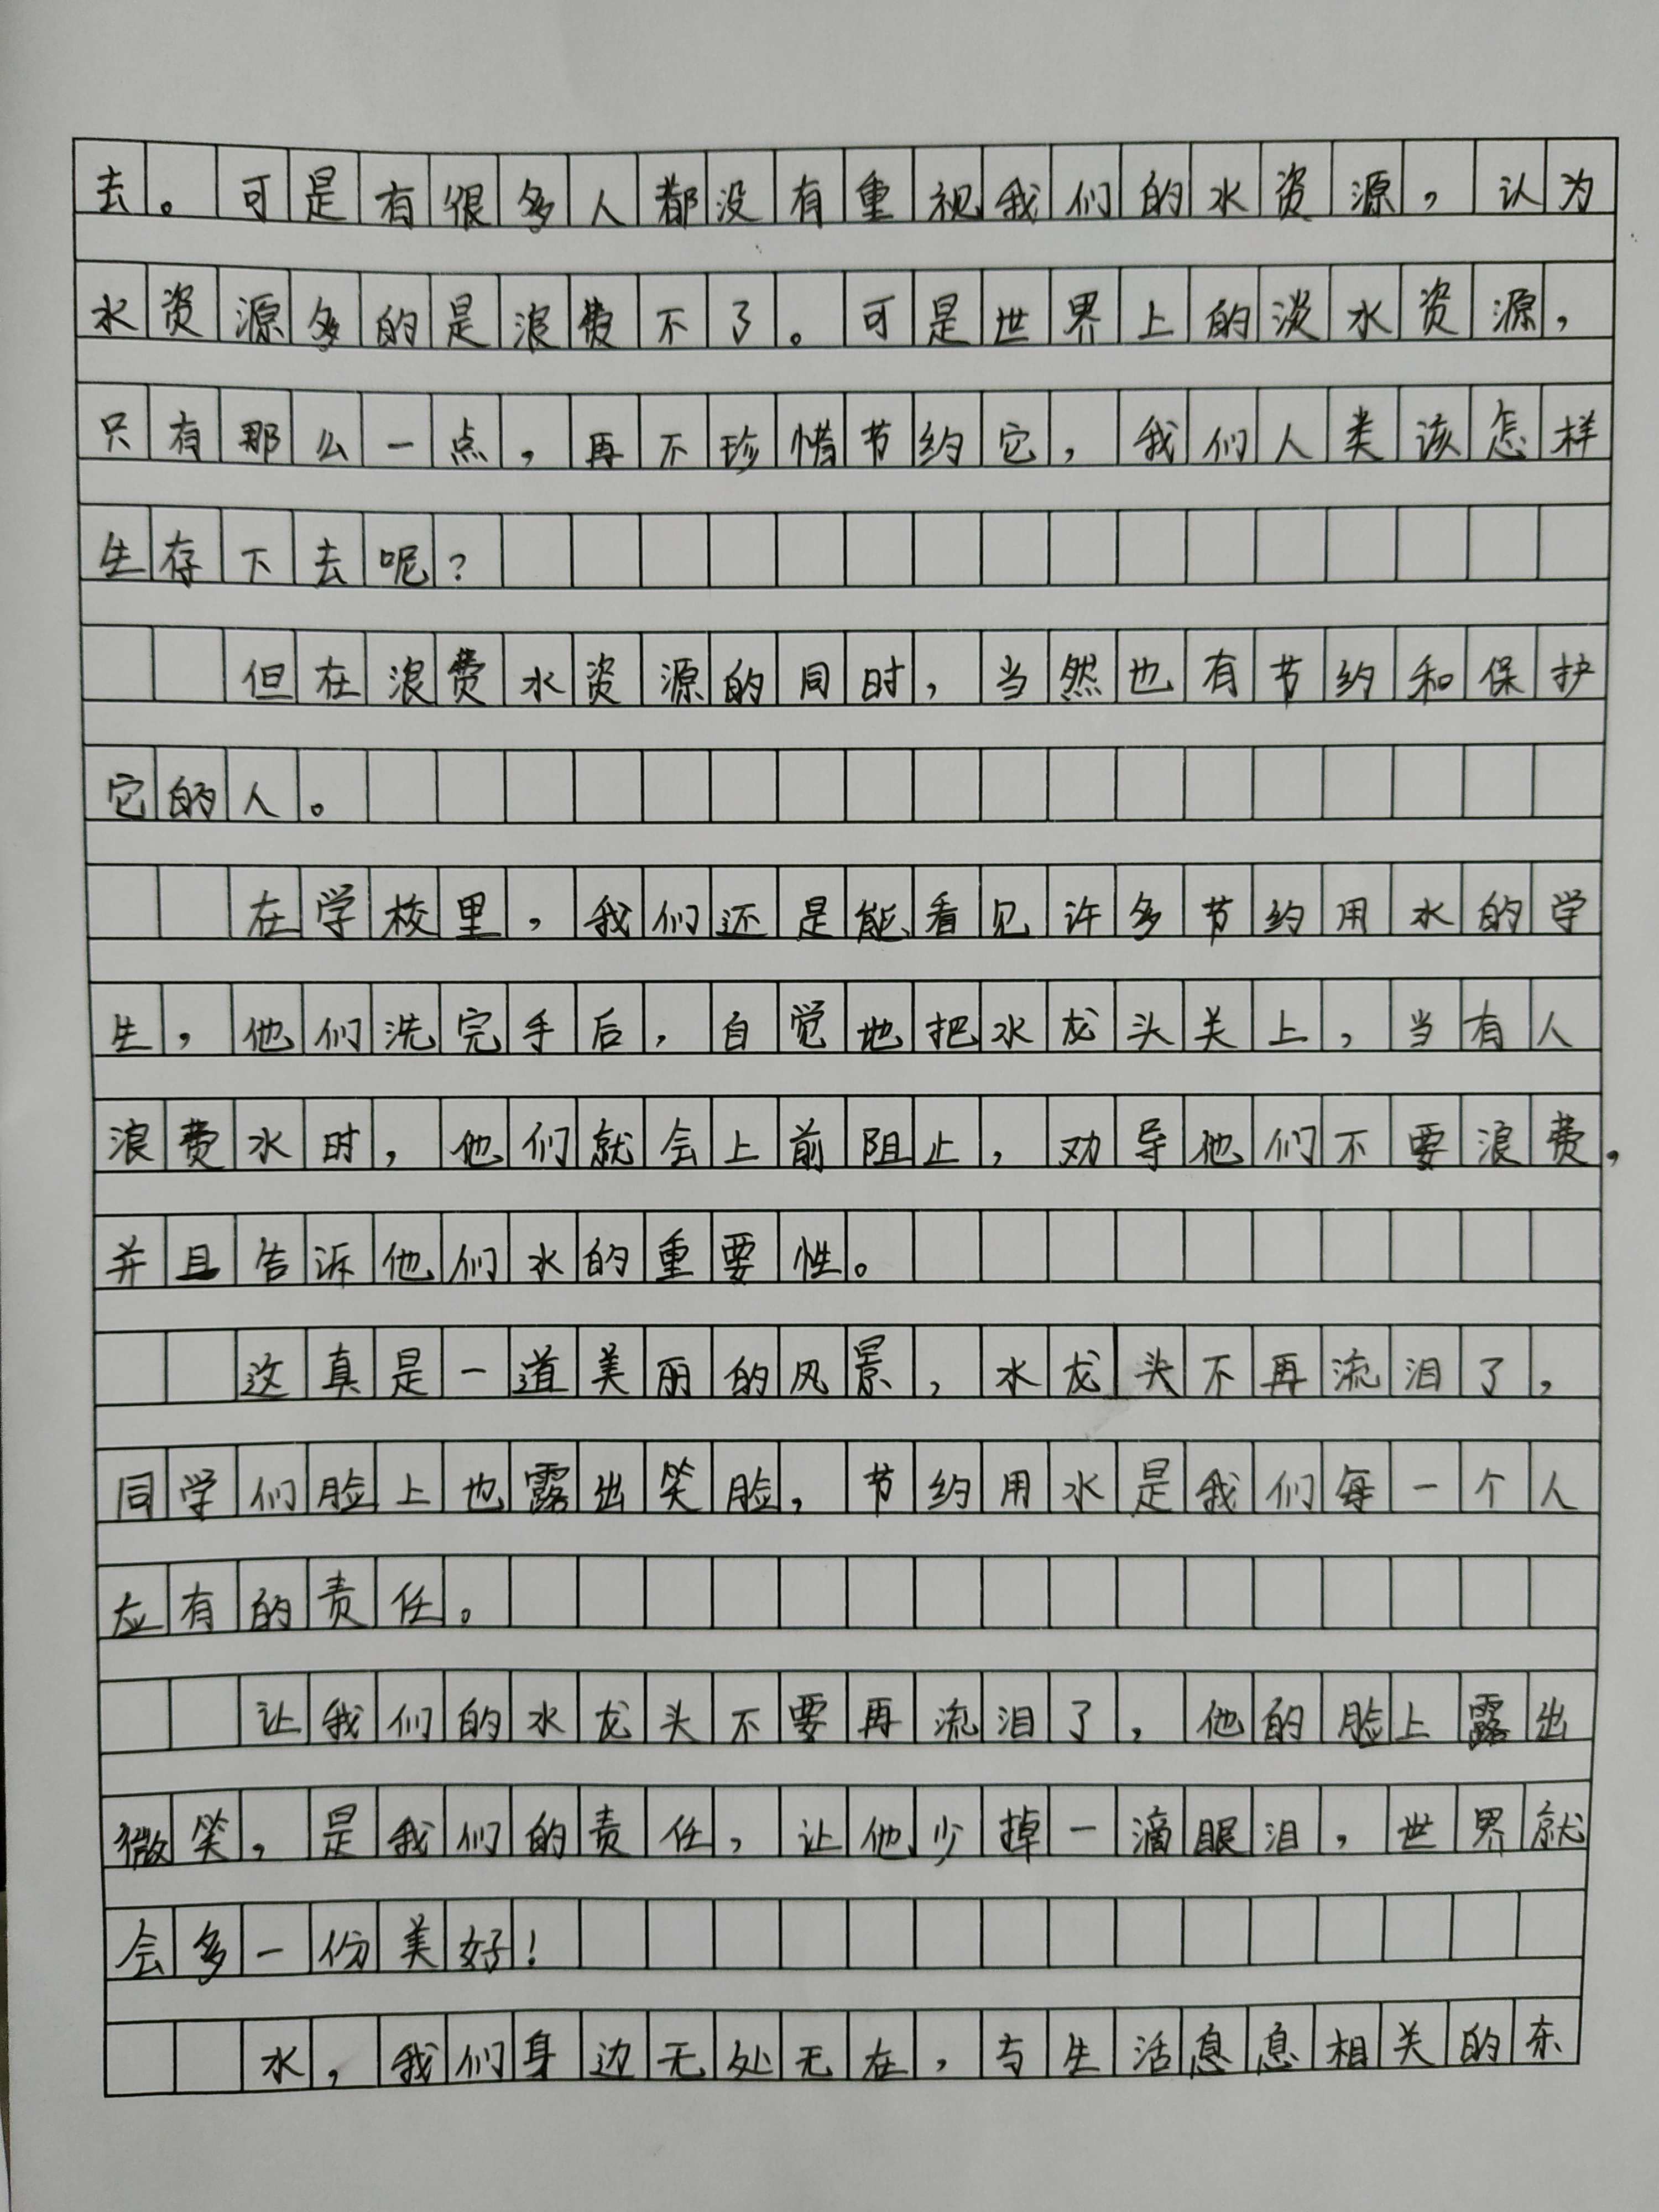 去。可是有很多人都没有重视我们的水资源，认为
水资源多的是浪费不了。可是世界上的淡水资源，
只有那么一点，再不珍惜节约它，我们人类该怎样
生存下去呢？
但在浪费水资源的同时，当然也有节约和保护
它的人。
在学校里，我们还是能看见许多节约用水的学
生，他们洗完手后，自觉地把水龙头关上，当有人
浪费水时，他们就会上前阻止，劝导他们不要浪费，
并且告诉他们水的重要性。
这真是一道美丽的风景，水龙头不再流泪了，
同学们脸上也露出笑脸，节约用水是我们每一个人
应有的责任。
让我们的水龙头不要再流泪了，他的脸上露出
微笑，是我们的责任，让他少掉一滴眼泪，世界就
会多一份美好！
水，我们身边无处无在，与生活息息相关的东